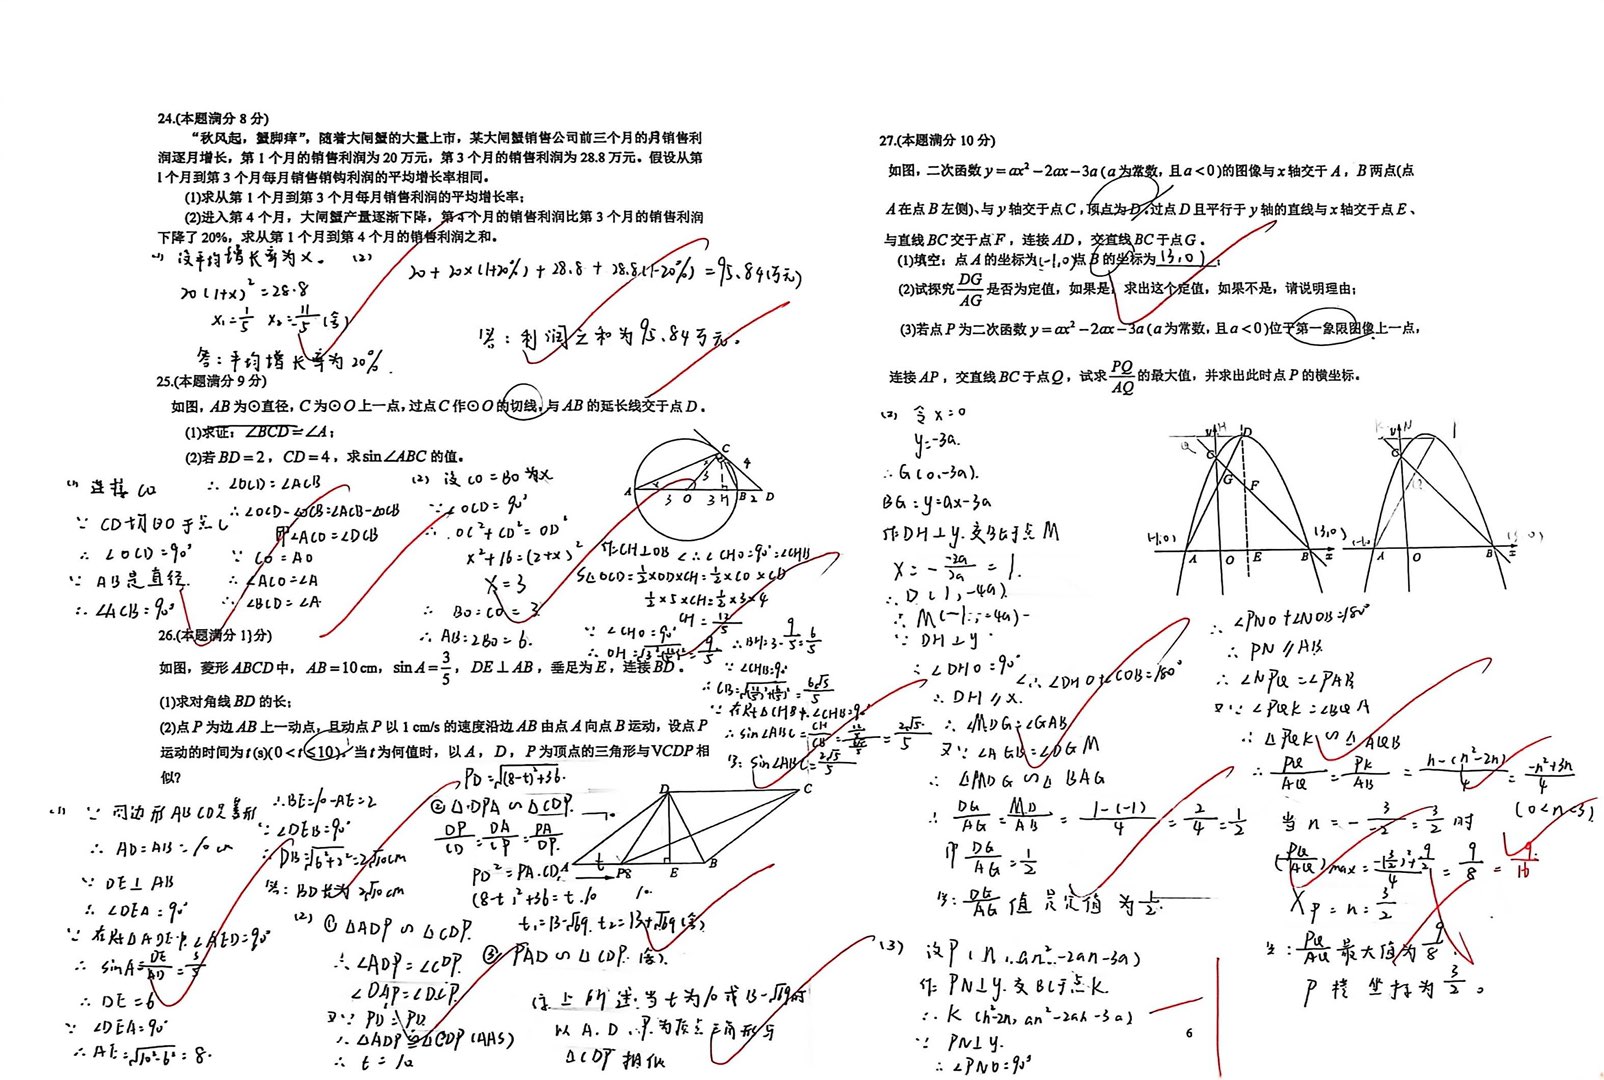 24.(本题满分 8 分)
“秋风起，蟹脚痒”，随着大闸蟹的大量上市，某大闸蟹销售公司前三个月的月销售利
润逐月增长，第 1 个月的销售利润为 20 万元，第 3 个月的销售利润为 28.8 万元。假设从第
1 个月到第 3 个月每月销售销钩利润的平均增长率相同。
(1)求从第 1 个月到第 3 个月每月销售利润的平均增长率；
(2)进入第 4 个月，大闸蟹产量逐渐下降，第 4 个月的销售利润比第 3 个月的销售利润
下降了 20%，求从第 1 个月到第 4 个月的销售利润之和。
(1) 设平均增长率为 x。
20(1+x)²=28.8
x₁=1/5 x₂=-11/5 (舍)
答：平均增长率为 20%.
(2)
20+20×(1+20%)+28.8+28.8(1-20%)=95.84(万元)
答：利润之和为 95.84万元。
25.(本题满分 9 分)
如图，AB 为⊙O直径，C 为⊙O 上一点，过点 C 作⊙O 的切线，与 AB 的延长线交于点 D。
(1)求证：∠BCD=∠A；
(2)若 BD=2，CD=4，求 sin∠ABC 的值。
(1) 连接 CO
∵ CD切⊙O于点C
∴ ∠OCD=90°
∵ AB是直径.
∴ ∠ACB=90°
∴ ∠OCD=∠ACB
∴ ∠OCD-∠OCB=∠ACB-∠OCB
即∠ACO=∠DCB
∵ CO=AO
∴ ∠ACO=∠A
∴ ∠BCD=∠A
(2) 设 CO=BO 为x
∵ ∠OCD=90°
∴ OC²+CD²=OD²
x²+16=(2+x)²
x=3
∴ BO=CO=3
∴ AB=2BO=6.
作CH⊥OB ∴∠CHO=90°=∠CHB
S△OCD=1/2×OD×CH=1/2×CO×CD
1/2×5×CH=1/2×3×4
CH=12/5
∵ ∠CHO=90°
∴ BH=3-9/5=6/5
∵ ∠CHB=90°
∴ CB=6√5/5
∵ 在Rt△CHB中,∠CHB=90°
∴ sin∠ABC=CH/CB=2√5/5
答: sin∠ABC=2√5/5
A O B D C H 3 3 2 4
26.(本题满分 11分)
如图，菱形 ABCD 中，AB=10 cm，sin A=3/5，DE⊥AB，垂足为 E，连接 BD。
(1)求对角线 BD 的长；
(2)点 P 为边 AB 上一动点，且动点 P 以 1 cm/s 的速度沿边 AB 由点 A 向点 B 运动，设点 P
运动的时间为 t (s)(0<t≤10)，当 t 为何值时，以 A，D，P 为顶点的三角形与VCDP 相
似?
(1) ∵ 四边形ABCD是菱形
∴ AD=AB=10cm
∵ DE⊥AB
∴ ∠DEA=90°
∵ 在Rt△ADE中,∠AED=90°
∴ sinA=DE/AD=3/5
∴ DE=6
∵ ∠DEA=90°
∴ AE=√10²-6²=8.
∴ BE=10-AE=2
∵ ∠DEB=90°
∴ DB=√6²+2²=2√10cm
答: BD长为2√10cm
(2) ① △ADP∽△CDP.
∴ ∠ADP=∠CDP.
∠DAP=∠DCP.
又∵ PD=PD
∴ △ADP≌△CDP(AAS)
∴ t=10
PD=√(8-t)²+36.
② △DPA∽△CDP.
DP/CD=DA/CP=PA/DP.
PD²=PA·CD.
(8-t)²+36=t·10
t₁=13-√69 t₂=13+√69(舍)
③ PAD∽△CDP.(舍).
综上所述:当t为10或13-√69时
以A.D.P为顶点三角形与
△CDP相似
D C A P E B t 10
27.(本题满分 10 分)
如图，二次函数 y=ax²-2ax-3a (a 为常数，且 a<0)的图像与 x 轴交于 A，B 两点(点
A 在点 B 左侧)、与 y 轴交于点 C，顶点为 D，过点 D 且平行于 y 轴的直线与 x 轴交于点 E、
与直线 BC 交于点 F，连接 AD，交直线 BC 于点 G。
(1)填空：点 A 的坐标为(-1,0)点 B 的坐标为(3,0)；
(2)试探究 DG/AG 是否为定值，如果是，求出这个定值，如果不是，请说明理由；
(3)若点 P 为二次函数 y=ax²-2ax-3a (a 为常数，且 a<0)位于第一象限图像上一点，
连接 AP，交直线 BC 于点 Q，试求 PQ/AQ 的最大值，并求出此时点 P 的横坐标。
(2) 令x=0
y=-3a.
∴ G(0,-3a).
BG: y=ax-3a
作DH⊥y.交BC于点M
x=-(-2a)/2a=1.
∴ D(1,-4a)
∴ M(-1,-4a)
∵ DH⊥y
∴ ∠DHO=90°
∴ ∠DHO+∠COB=180°
∴ DH∥x.
∴ ∠MDG=∠GAB
又∵ ∠AGB=∠DGM
∴ △MDG∽△BAG
∴ DG/AG=MD/AB=1-(-1)/4=2/4=1/2
即 DG/AG=1/2
答: DG/AG值是定值为1/2.
(3) 设P(n,an²-2an-3a)
作PN⊥y.交BC于点K.
∴ K(n²-2n,an²-2an-3a)
∵ PN⊥y.
∴ ∠PNO=90°
∴ ∠PNO+∠NOB=180°
∴ PN∥AB.
∴ ∠NPQ=∠PAB
又∵ ∠PQK=∠BQA
∴ △PQK∽△AQB
∴ PQ/AQ=PK/AB=n-(n²-2n)/4=-n²+3n/4
(0<n<3)
当n=-3/-2=3/2时
(PQ/AQ)max=-(3/2)²+9/2/4=9/8=9/16
Xp=n=3/2
答: PQ/AQ最大值为9/8
P横坐标为3/2。
(-1,0) A O E B (3,0) x C G F D H
A O B x C
6